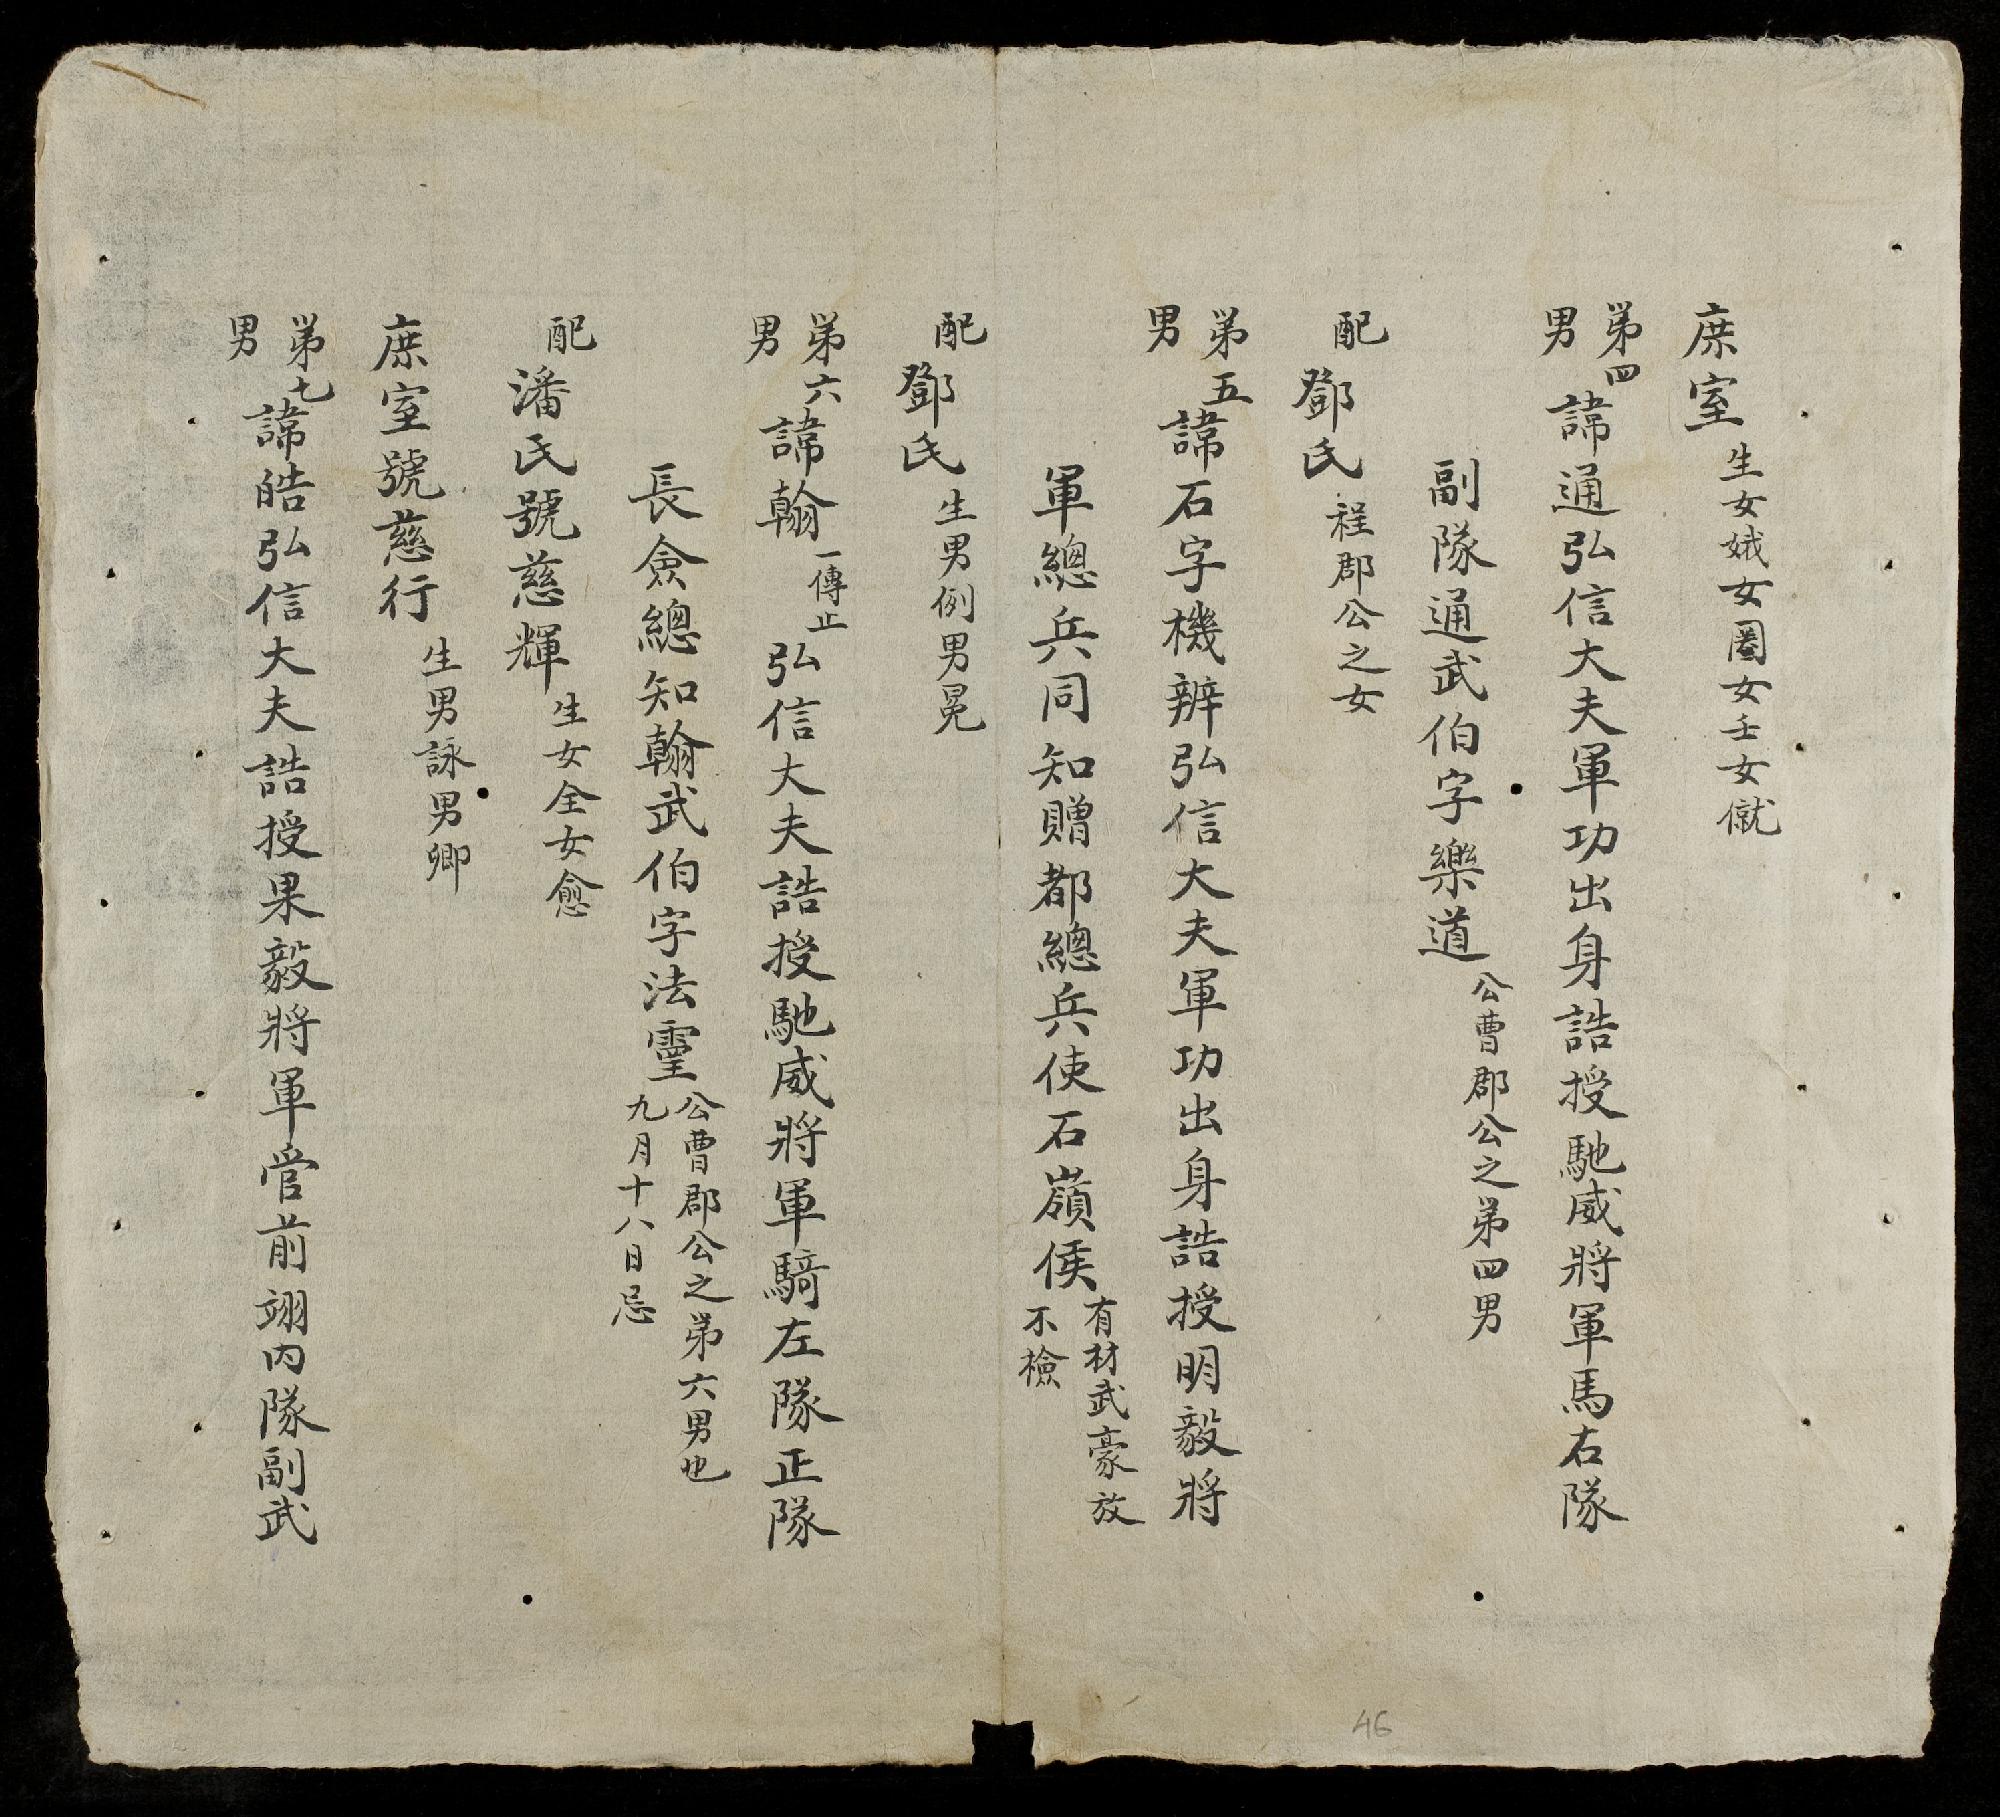 庶室生女娥女圈女壬女僦
第四男諱通弘信大夫軍功出身誥授馳威將軍馬右隊
副隊通武伯字樂道公曹郡公之第四男
配鄧氏程郡公之女
第五男諱石字機辨弘信大夫軍功出身誥授明毅將
軍總兵同知贈都總兵使石嶺侯有材武豪放不檢
配鄧氏生男例男冕
第六男諱翰一傳止弘信大夫誥授馳威將軍騎左隊正隊
長僉總知翰武伯字法靈公曹郡公之第六男也九月十八日忌
配潘氏號慈輝生女全女愈
庶室號慈行生男詠男卿
第七男諱皓弘信大夫誥授果毅將軍管前翊內隊副武
46